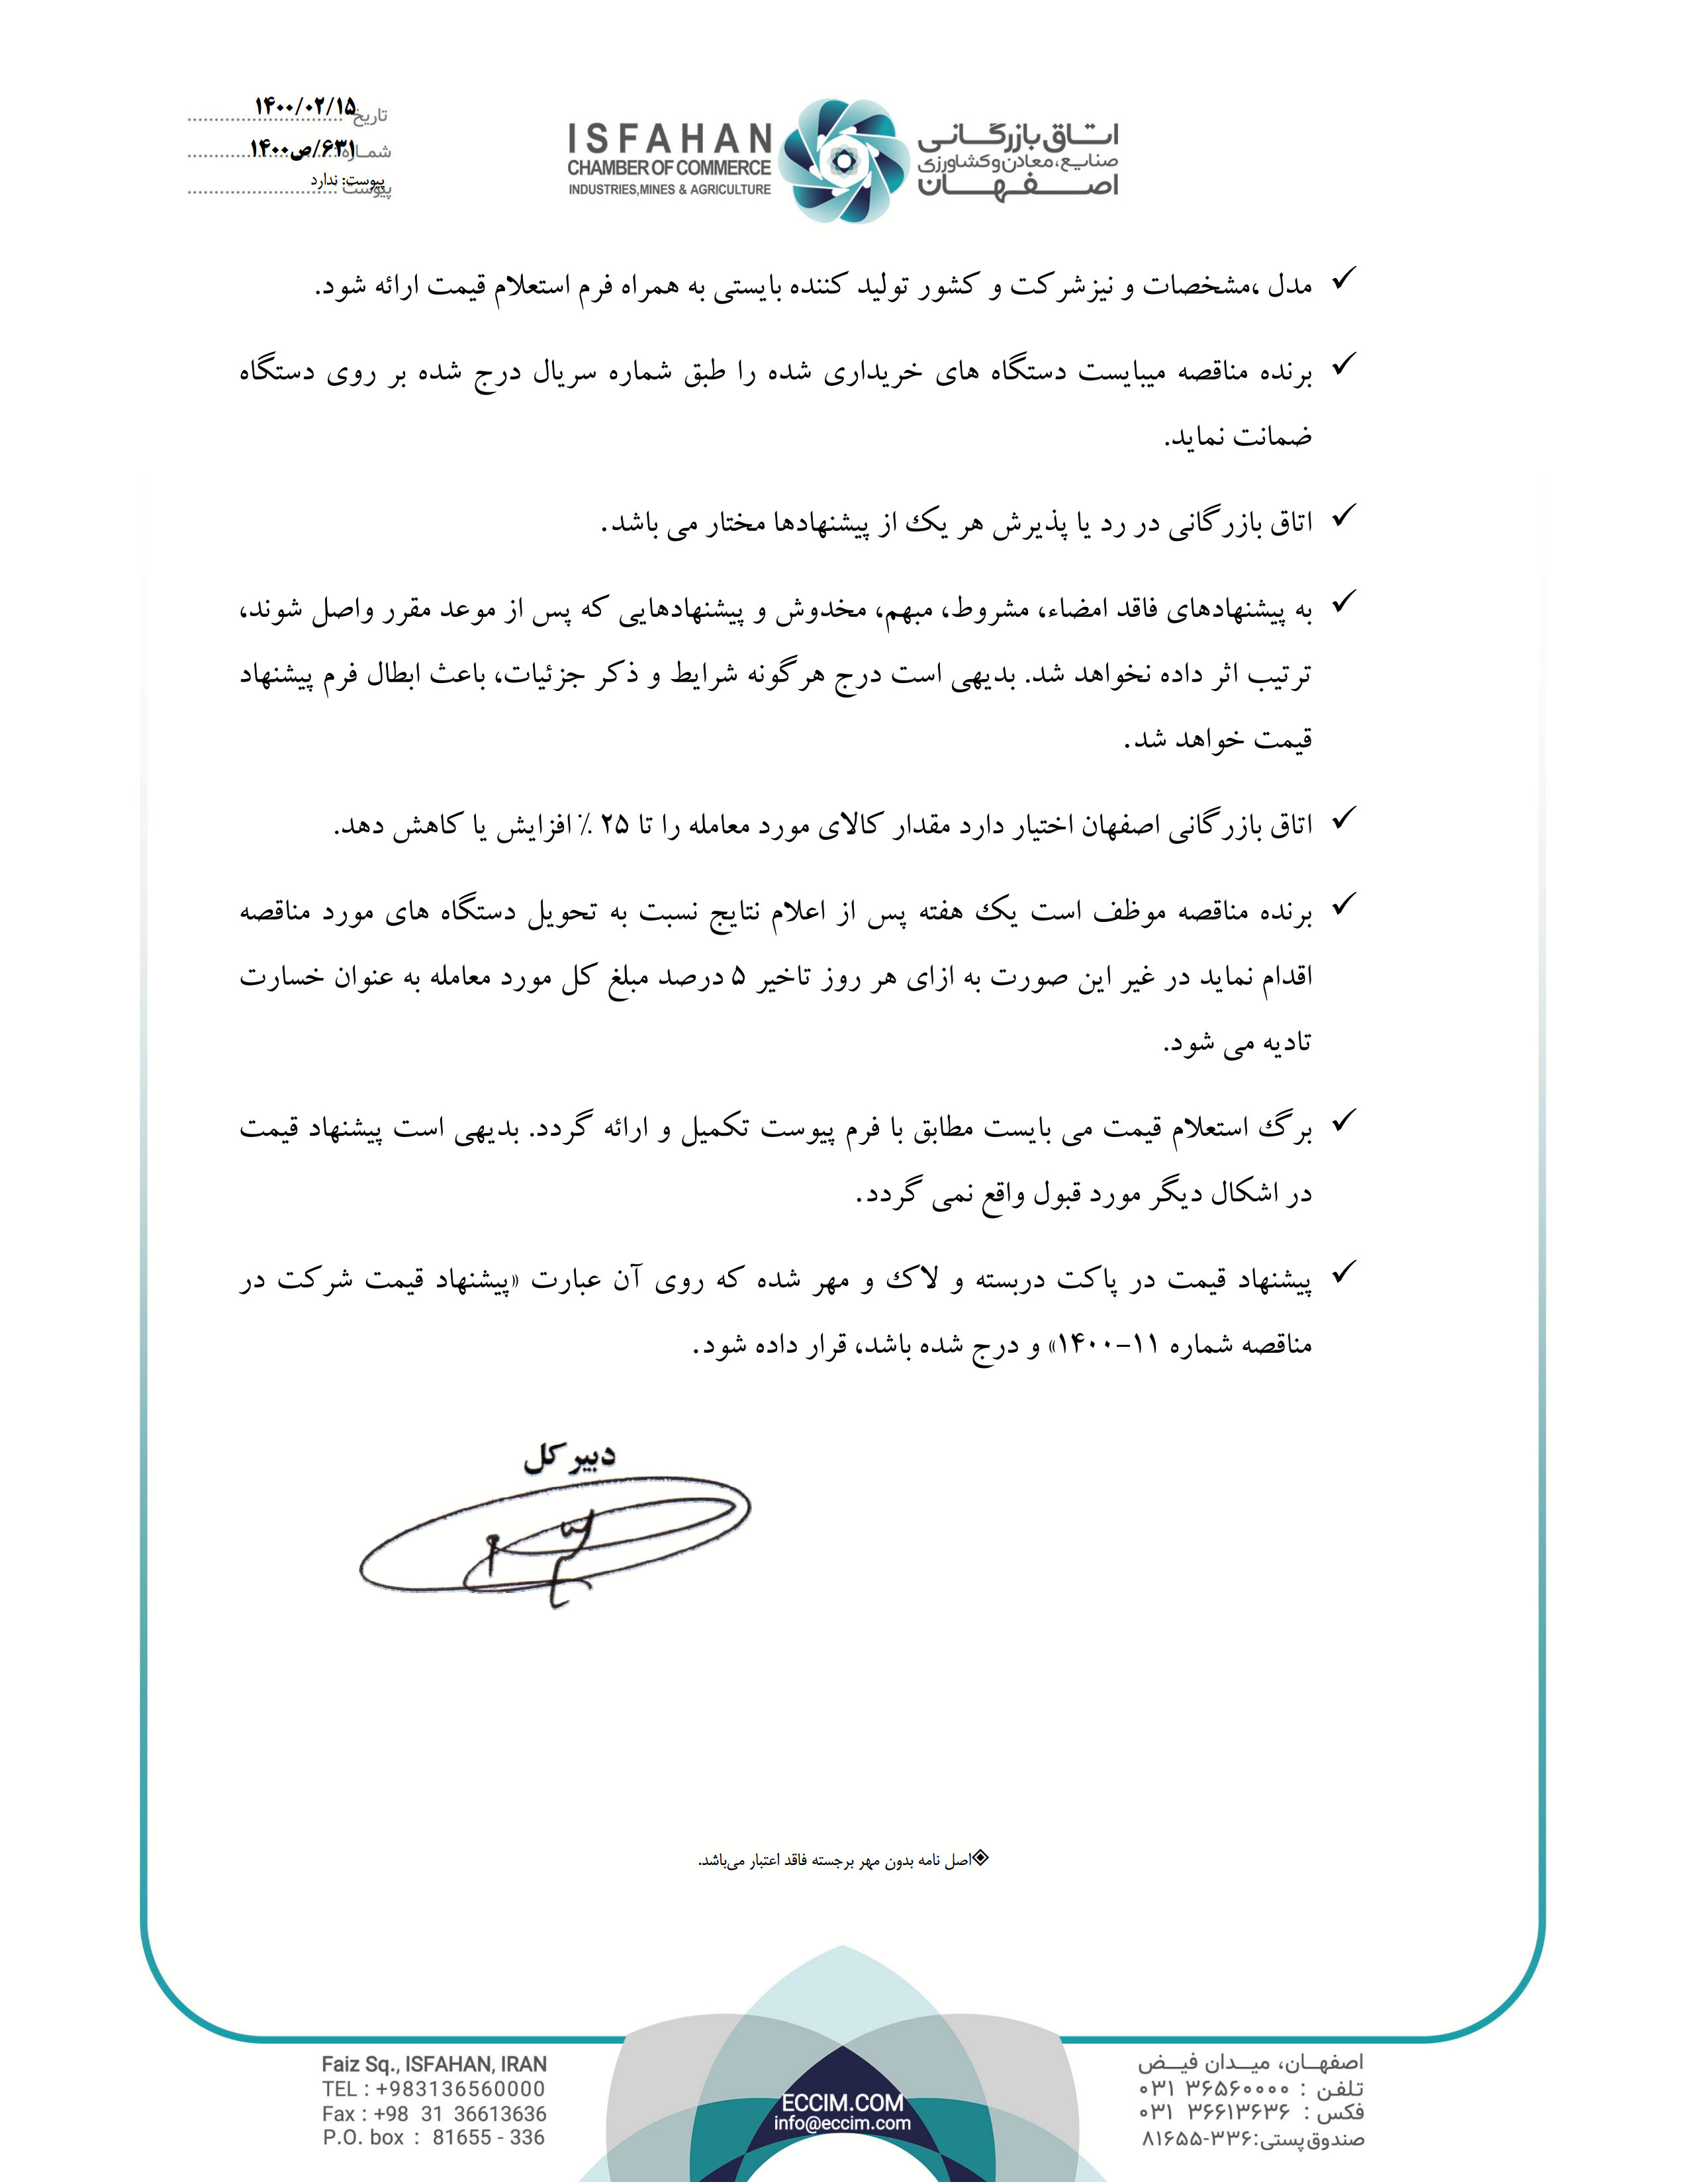 تاریخ ۱۴۰۰/۰۲/۱۵
شماره ۶۳۱/ص/۱۴۰۰
پیوست پیوست: ندارد
ISFAHAN
CHAMBER OF COMMERCE
INDUSTRIES,MINES & AGRICULTURE
اتاق بازرگانی
صنایع، معادن و کشاورزی
اصفهان
✓ مدل ،مشخصات و نیزشرکت و کشور تولید کننده بایستی به همراه فرم استعلام قیمت ارائه شود.
✓ برنده مناقصه میبایست دستگاه های خریداری شده را طبق شماره سریال درج شده بر روی دستگاه
ضمانت نماید.
✓ اتاق بازرگانی در رد یا پذیرش هر یک از پیشنهادها مختار می باشد.
✓ به پیشنهادهای فاقد امضاء، مشروط، مبهم، مخدوش و پیشنهادهایی که پس از موعد مقرر واصل شوند،
ترتیب اثر داده نخواهد شد. بدیهی است درج هرگونه شرایط و ذکر جزئیات، باعث ابطال فرم پیشنهاد
قیمت خواهد شد.
✓ اتاق بازرگانی اصفهان اختیار دارد مقدار کالای مورد معامله را تا ۲۵ ٪ افزایش یا کاهش دهد.
✓ برنده مناقصه موظف است یک هفته پس از اعلام نتایج نسبت به تحویل دستگاه های مورد مناقصه
اقدام نماید در غیر این صورت به ازای هر روز تاخیر ۵ درصد مبلغ کل مورد معامله به عنوان خسارت
تادیه می شود.
✓ برگ استعلام قیمت می بایست مطابق با فرم پیوست تکمیل و ارائه گردد. بدیهی است پیشنهاد قیمت
در اشکال دیگر مورد قبول واقع نمی گردد.
✓ پیشنهاد قیمت در پاکت دربسته و لاک و مهر شده که روی آن عبارت «پیشنهاد قیمت شرکت در
مناقصه شماره ۱۱-۱۴۰۰» و درج شده باشد، قرار داده شود.
دبیر کل
◈اصل نامه بدون مهر برجسته فاقد اعتبار می‌باشد.
Faiz Sq., ISFAHAN, IRAN
TEL : +983136560000
Fax : +98 31 36613636
P.O. box : 81655 - 336
ECCIM.COM
info@eccim.com
اصفهـان، میـدان فیـض
تلفن : ۳۶۵۶۰۰۰۰ ۰۳۱
فکس : ۳۶۶۱۳۶۳۶ ۰۳۱
صندوق پستی: ۸۱۶۵۵-۳۳۶